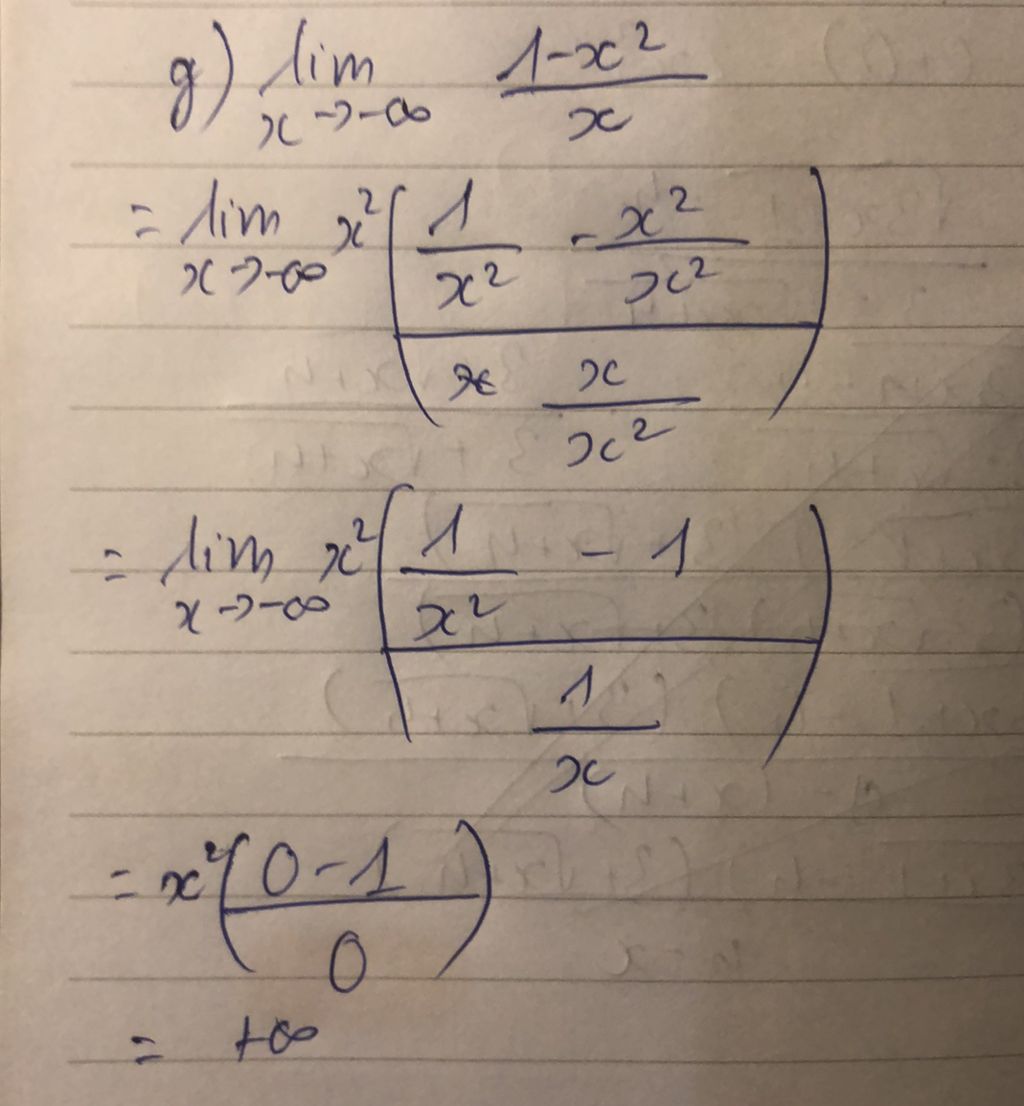 g) lim x→-∞ (1-x²)/x
= lim x→-∞ x² ( (1/x² - x²/x²) / (x/x²) )
= lim x→-∞ x² ( (1/x² - 1) / (1/x) )
= x² ( (0-1) / 0 )
= +∞